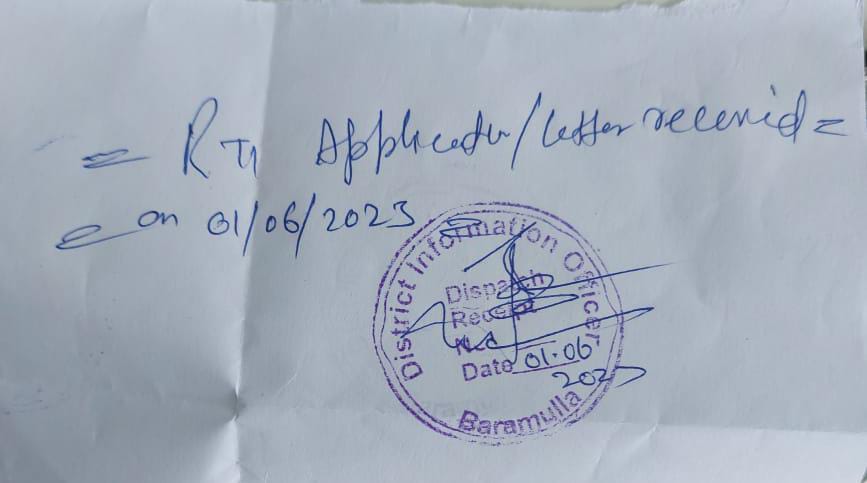 = RTI Application/letter received =
= on 01/06/2023 =
District Information Officer
Dispatch
Receipt
No.
Date 01.06
2023
Baramulla